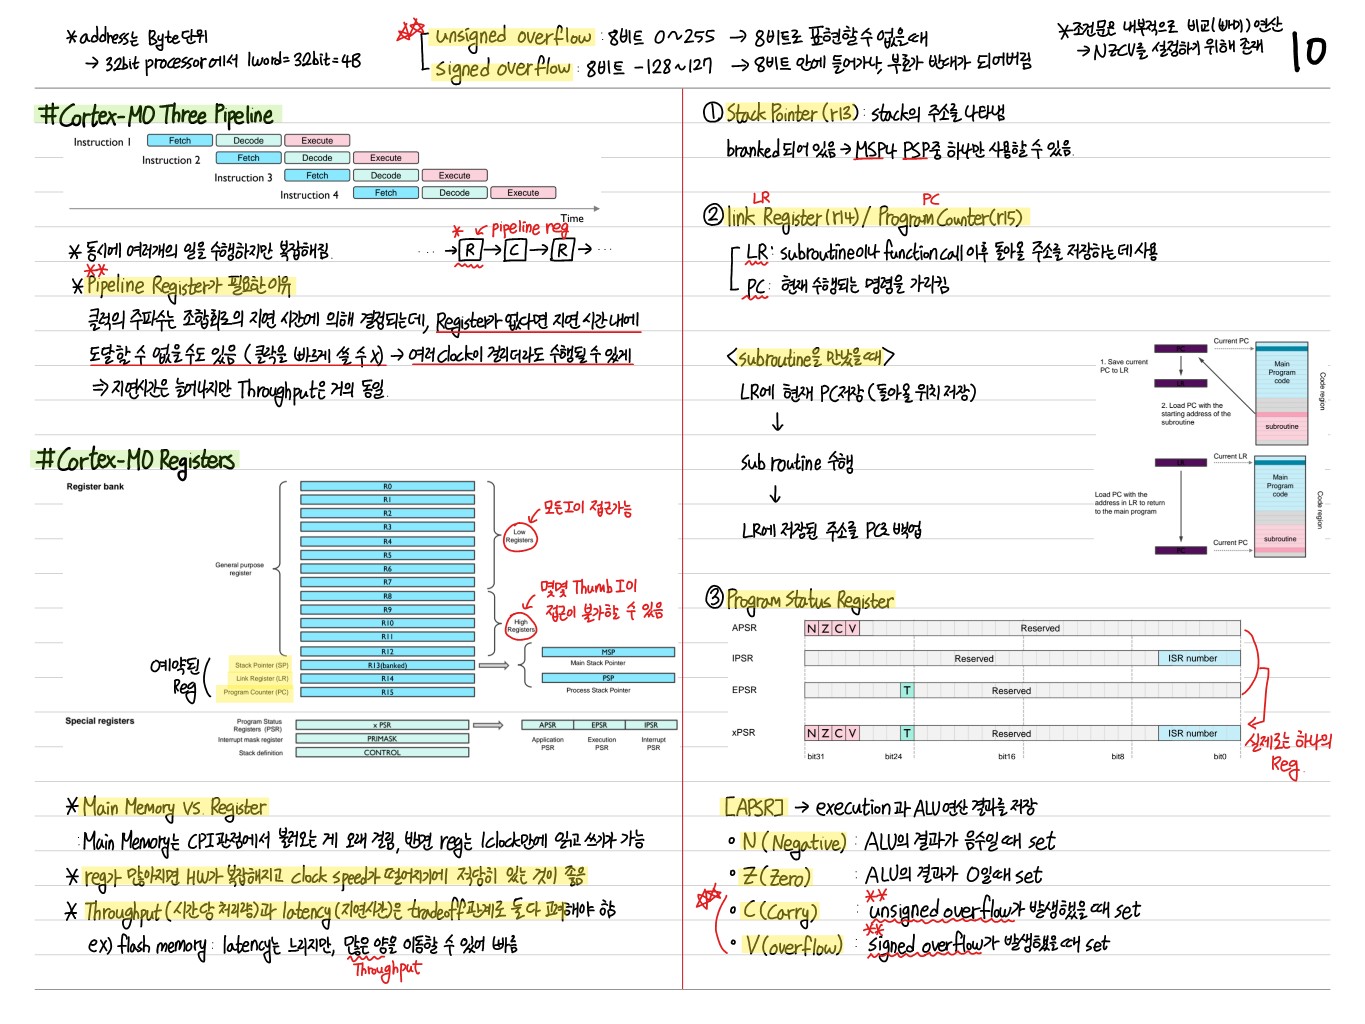 *address는 Byte단위
→ 32bit processor에서 1word=32bit=4B
unsigned overflow : 8비트 0~255 → 8비트로 표현할 수 없을때
signed overflow : 8비트 -128~127 → 8비트 안에 들어가나, 부호가 반대가 되어버림
*조건문은 내부적으로 비교(빼기) 연산
→ NZCV를 설정하기 위해 존재
10
#Cortex-M0 Three Pipeline
Instruction 1 Fetch Decode Execute
Instruction 2 Fetch Decode Execute
Instruction 3 Fetch Decode Execute
Instruction 4 Fetch Decode Execute
Time
* pipeline reg
··· → R → C → R → ···
* 동시에 여러개의 일을 수행하지만 복잡해짐.
** 
* Pipeline Register가 필요한 이유
클럭의 주파수는 조합회로의 지연 시간에 의해 결정되는데, Register가 없다면 지연 시간 내에
도달할 수 없을 수도 있음 (클락을 빠르게 쓸 수 x) → 여러 clock이 걸리더라도 수행될 수 있게
⇒ 지연시간은 늘어나지만 Throughput은 거의 동일.
#Cortex-M0 Registers
Register bank
R0
R1
R2
R3
R4
R5
R6
R7
R8
R9
R10
R11
R12
R13(banked)
R14
R15
General purpose register
Low Registers
모든 I이 접근가능
High Registers
몇몇 Thumb I이
접근이 불가할 수 있음
예약된
Reg
Stack Pointer (SP)
Link Register (LR)
Program Counter (PC)
MSP
Main Stack Pointer
PSP
Process Stack Pointer
Special registers
Program Status Registers (PSR) x PSR
Interrupt mask register PRIMASK
Stack definition CONTROL
APSR EPSR IPSR
Application PSR Execution PSR Interrupt PSR
* Main Memory vs. Register
: Main Memory는 CPI관점에서 불러오는 게 오래 걸림, 반면 reg는 1clock만에 읽고 쓰기가 가능
* reg가 많아지면 HW가 복잡해지고 clock speed가 떨어지기에 적당히 있는 것이 좋음
* Throughput (시간당 처리량)과 latency (지연시간)은 tradeoff관계로 둘 다 고려해야 함
ex) flash memory : latency는 느리지만, 많은 양을 이동할 수 있어 빠름
Throughput
① Stack Pointer (r13) : stack의 주소를 나타냄
branked 되어 있음 → MSP나 PSP중 하나만 사용할 수 있음.
LR PC
② link Register(r14) / Program Counter(r15)
LR : subroutine이나 function call 이후 돌아올 주소를 저장하는 데 사용
PC : 현재 수행되는 명령을 가리킴
<subroutine을 만났을 때>
LR에 현재 PC저장 (돌아올 위치 저장)
↓
sub routine 수행
↓
LR에 저장된 주소를 PC로 백업
PC
Current PC
1. Save current PC to LR
LR
2. Load PC with the starting address of the subroutine
Main Program code
subroutine
Code region
LR
Current LR
Load PC with the address in LR to return to the main program
PC
Current PC
Main Program code
subroutine
Code region
③ Program Status Register
APSR N Z C V Reserved
IPSR Reserved ISR number
EPSR T Reserved
xPSR N Z C V T Reserved ISR number
bit31 bit24 bit16 bit8 bit0
실제로는 하나의
Reg.
[APSR] → execution과 ALU연산 결과를 저장
• N (Negative) : ALU의 결과가 음수일 때 set
• Z (Zero) : ALU의 결과가 0일때 set
**
• C (Carry) : unsigned overflow가 발생했을 때 set
**
• V (overflow) : signed overflow가 발생했을 때 set